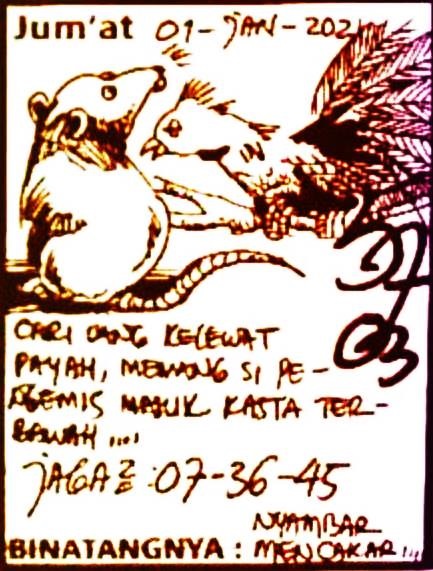 Jum'at 01-JAN-2021
CARI UANG KELEWAT
PAYAH, MEMANG SI PE-
NGEMIS MASUK KASTA TER-
BAWAH ....
03
JAGA2 : 07-36-45
NYAMBAR
BINATANGNYA : MENCAKAR ...